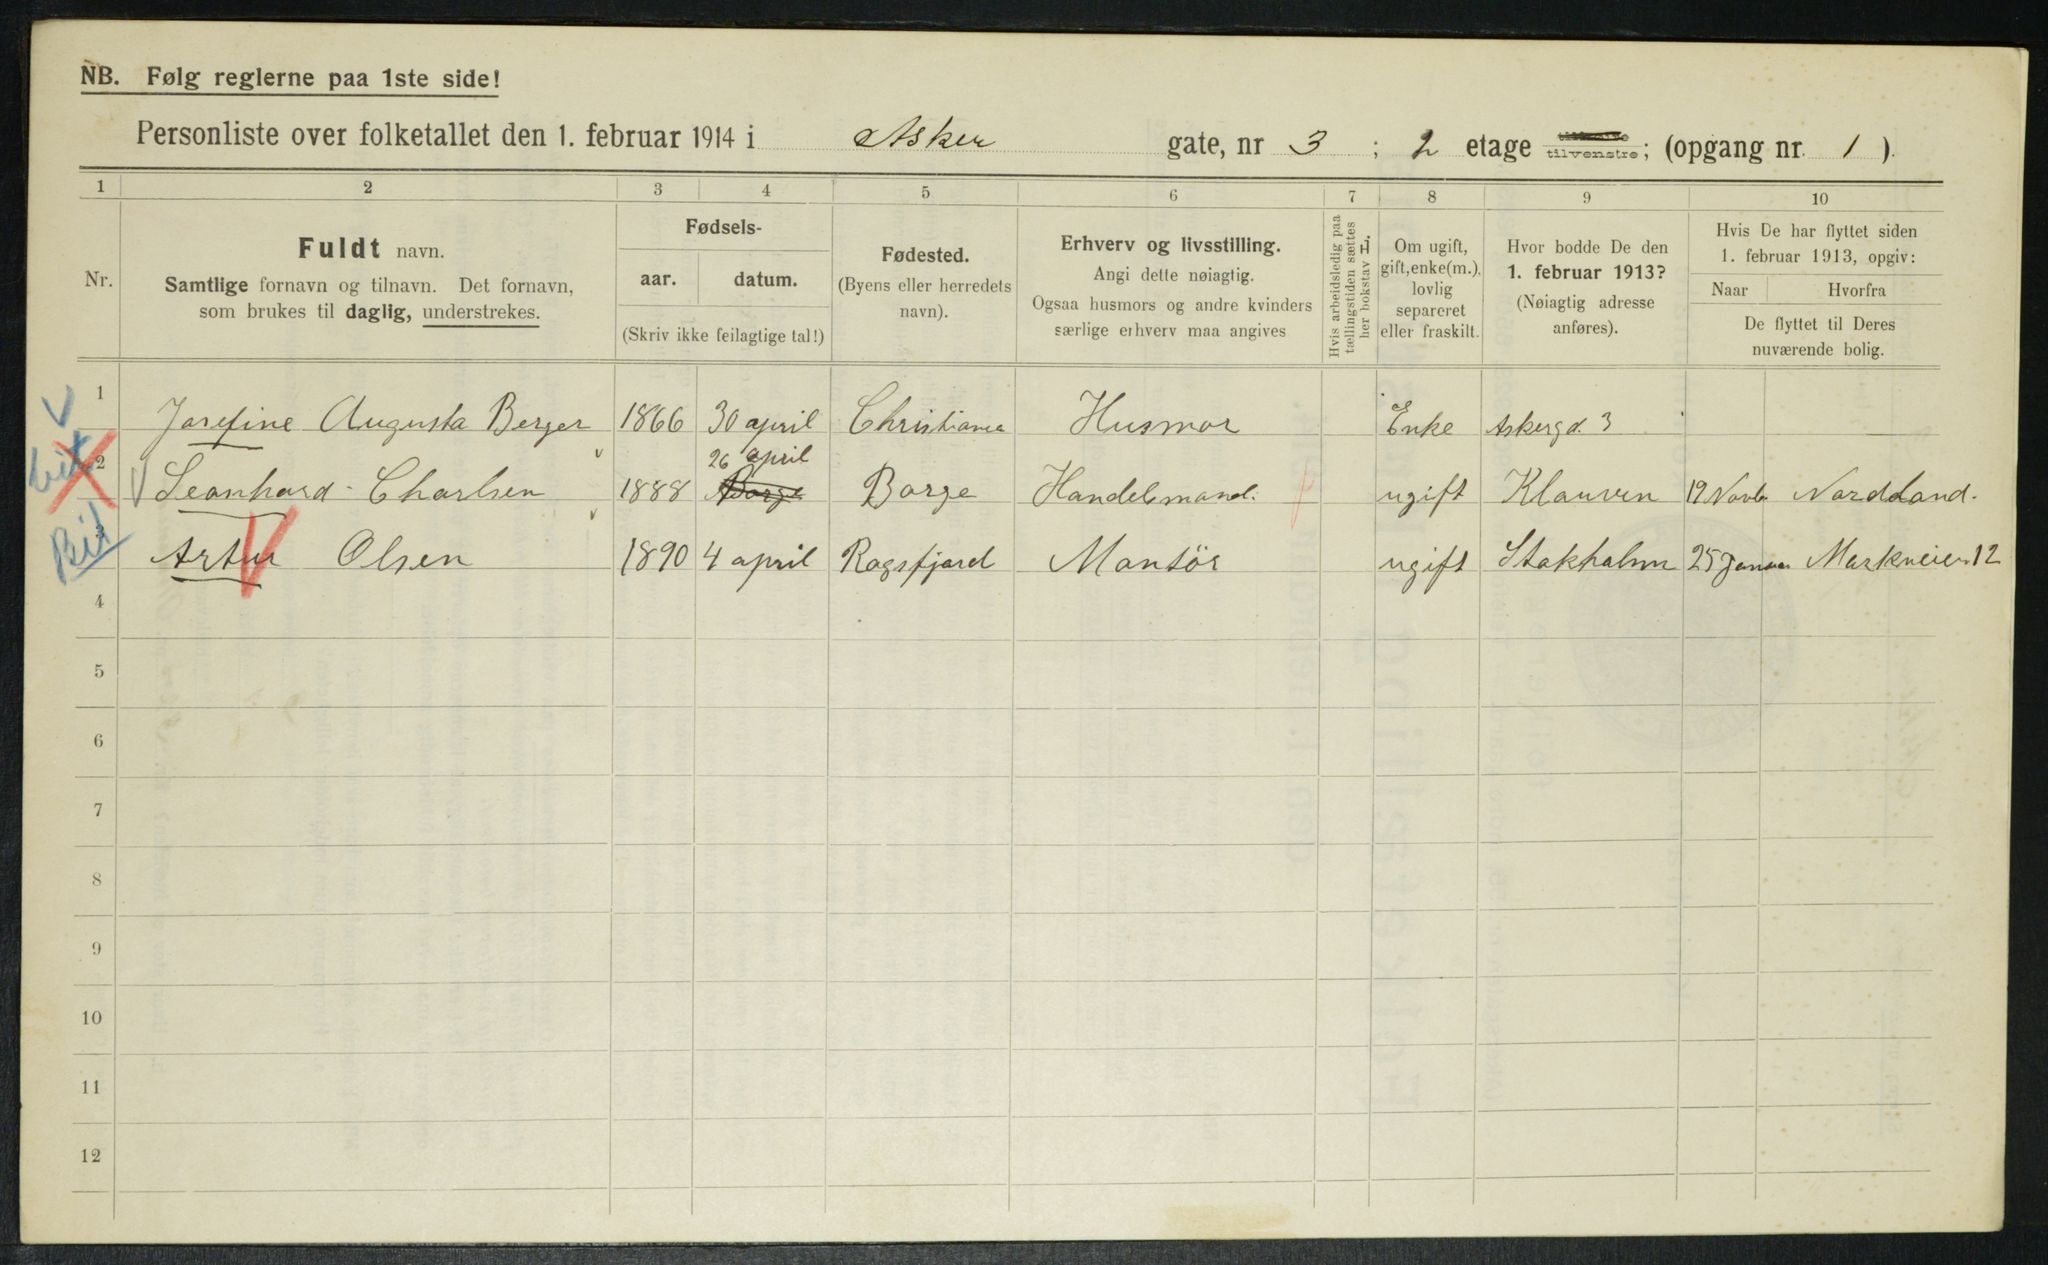 NB. Følg reglerne paa 1ste side!
Personliste over folketallet den 1. februar 1914 i Asker gate, nr 3 ; 2 etage tilvenstre; (opgang nr. 1 ).
1 2 3 4 5 6 7 8 9 10
Nr.
Fuldt navn.
Samtlige fornavn og tilnavn. Det fornavn,
som brukes til daglig, understrekes.
Fødsels-
aar. datum.
(Skriv ikke feilagtige tal!)
Fødested.
(Byens eller herredets
navn).
Erhverv og livsstilling.
Angi dette nøiagtig.
Ogsaa husmors og andre kvinders
særlige erhverv maa angives
Hvis arbeidsledig paa
tællingstiden sættes
her bokstav L.
Om ugift,
gift, enke(m.),
lovlig
separeret
eller fraskilt.
Hvor bodde De den
1. februar 1913?
(Nøiagtig adresse
anføres).
Hvis De har flyttet siden
1. februar 1913, opgiv:
Naar Hvorfra
De flyttet til Deres
nuværende bolig.
1 Josefine Augusta Berger 1866 30 april Christiania Husmor Enke Askergd. 3
26 april
2 Leonhard Charlsen 1888 Borge Borge Handelsmand. ugift Klauven 19 Novbr Nordland.
3 Artur Olsen 1890 4 april Rogsfjord Montør ugift Stokholm 25 Januar Markveien 12
4
5
6
7
8
9
10
11
12